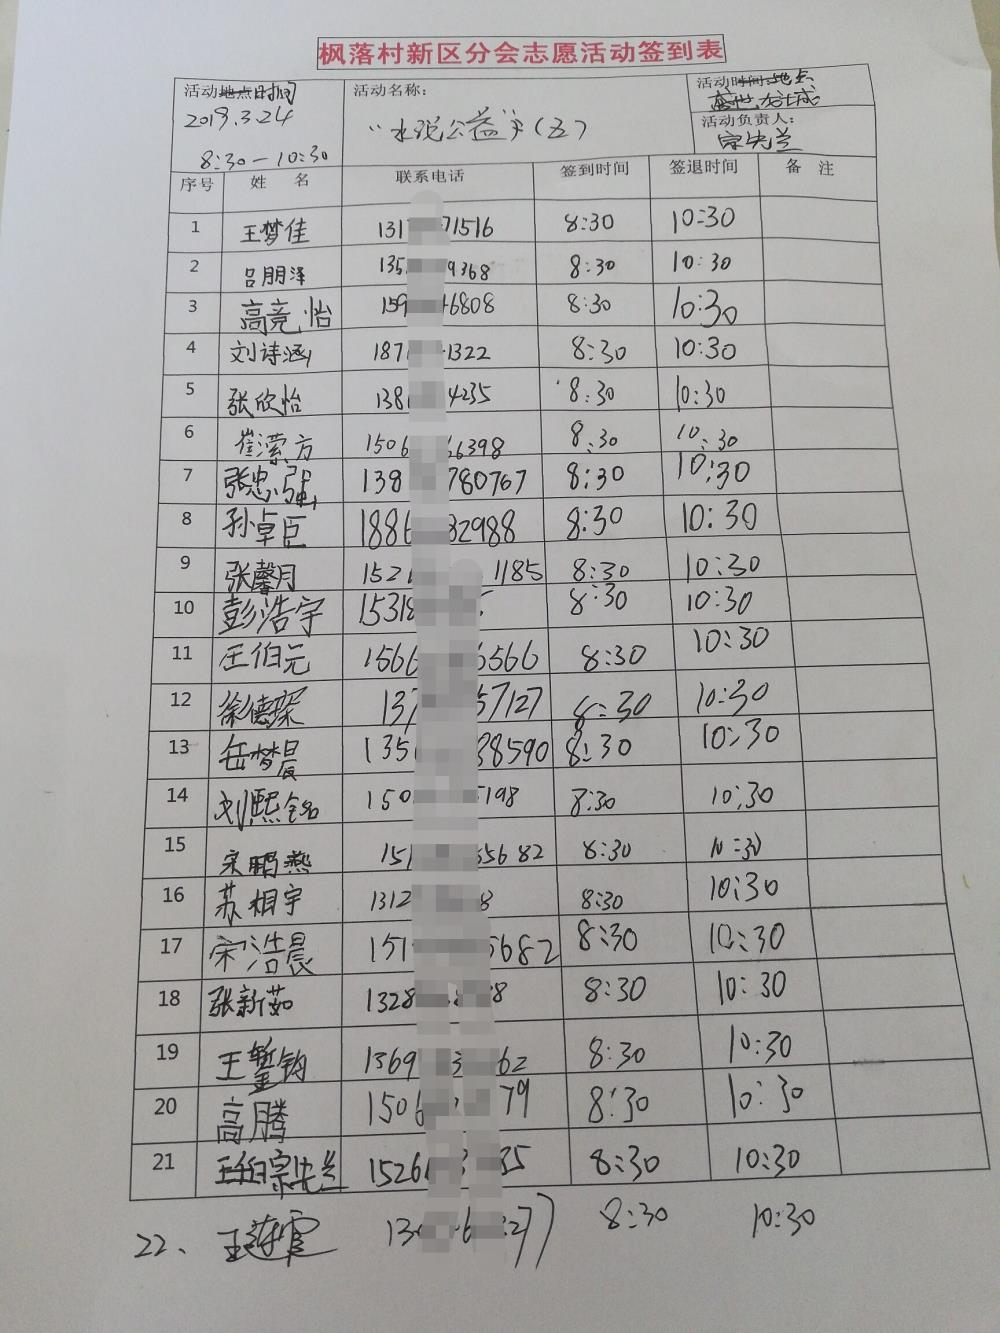 枫落村新区分会志愿活动签到表
活动时间 活动名称： 活动地点
2019.3.24 “水说公益”（五）
8:30—10:30 活动负责人：
宗先兰
序号 姓 名 联系电话 签到时间 签退时间 备 注
1 王梦佳 131 71516 8:30 10:30
2 吕朋泽 135 9368 8:30 10:30
3 高竞怡 159 6808 8:30 10:30
4 刘诗涵 187 1322 8:30 10:30
5 张欣怡 138 4235 8:30 10:30
6 崔潆方 1506 26398 8:30 10:30
7 张忠强 138 780767 8:30 10:30
8 孙卓臣 1886 32988 8:30 10:30
9 张馨月 152 1185 8:30 10:30
10 彭浩宇 15318 8:30 10:30
11 王伯元 1566 6566 8:30 10:30
12 徐德琛 137 57127 8:30 10:30
13 岳梦晨 135 38590 8:30 10:30
14 刘熙铭 150 5198 8:30 10:30
15 宋鹏燕 151 55682 8:30 10:30
16 苏相宇 1312 8 8:30 10:30
17 宋浩晨 151 5682 8:30 10:30
18 张新茹 1328 8 8:30 10:30
19 王錾钧 1369 3 62 8:30 10:30
20 高腾 1506 79 8:30 10:30
21 宗先兰 1526 35 8:30 10:30
22、 王莲霞 13 6 27) 8:30 10:30